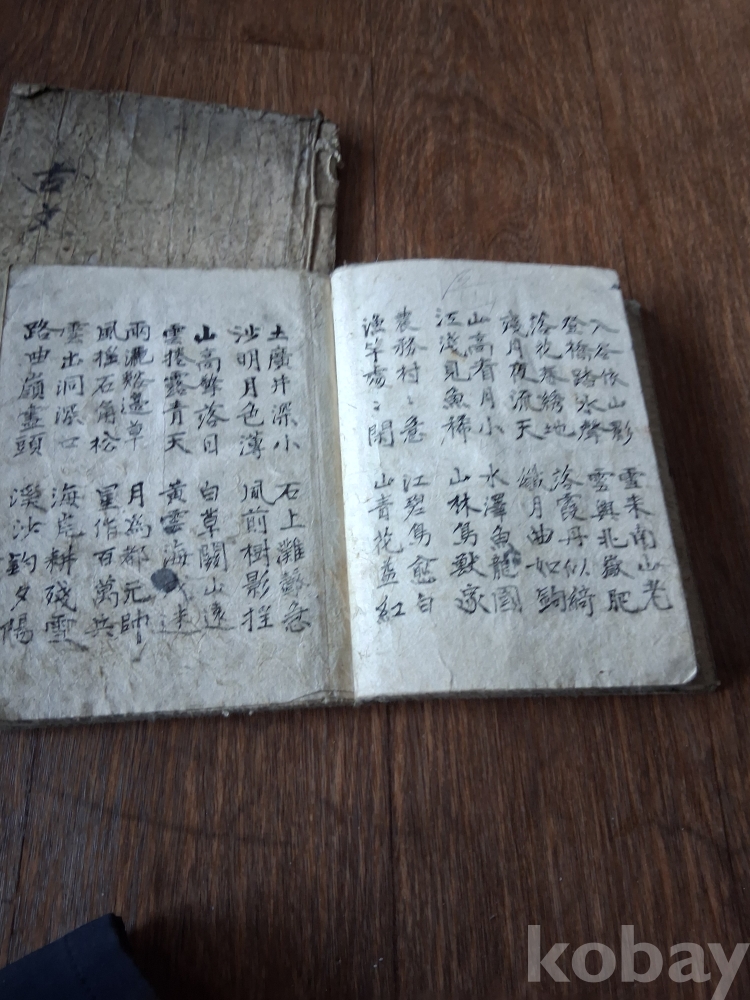 古文
入谷依山影 雪來南山老
登橋路水聲 雲興北嶽肥
落花 繡地 落霞丹似綺
殘月夜流天 纖月曲如鉤
山高看月小 水澤魚龍國
江淺見魚稀 山林鳥獸家
農務村〻急 江碧鳥愈白
漁竿處〻閑 山青花益紅
土廣井深小 石上灘聲急
沙明月色薄 風前樹影
山高餘落日 白草關山遠
雲捲露青天 黃雲海戍迷
雨灑谿邊草 月爲都元帥
風搖石角松 星作百萬兵
雲出洞深口 海荒耕殘雪
路曲嶺盡頭 溪沙釣夕陽
kobay